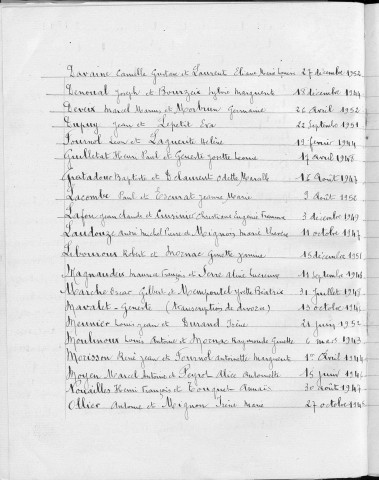 Davaine Camille Gustave et Laurent Eliane Marie 27 décembre 1952
Denoual Joseph et Bourzeix Sylvie Marguerite 18 décembre 1944
Deveix Marcel et Germaine 26 avril 1952
Dupuy Jean et Lepetit Eva 22 Septembre 1951
Fournol Léon et Laqueute Hélène 19 février 1944
Guilletat Henri Paul et Geneste Josette Leone 17 Avril 1948
Gratadour Baptiste et Odette Marcelle 16 Août 1947
Lacombe Paul et Jeanne Marie 3 Août 1950
Lafon Jean Claude et Eugénie 3 décembre 1949
Laudouze André Michel Pierre et Mignon Marie Thérèse 11 octobre 1947
Lebourous Robert et Mornac Ginette Jeanne 15 décembre 1951
Magnaudeix François et Serre Aline Lucienne 11 septembre
Marche Oscar Gilbert et Yvette Béatrix 31 juillet 1948
Mavalet - Geneste (transcription de divorce) 15 octobre
Meunier Louis Jean et Durand Irène 21 juin 1952
Moulinoux Louis Antoine et Mornac Raymonde Ginette 6 mars 1943
Morisson René Jean et Fournol Antoinette Marguerite 1er Avril
Moyen Marcel Antoine et Peyrot Alice Antoinette 15 juin
Nouailles Henri François et Touquet 30 août 1947
Ollier Antoine et Mignon Irène Marie 27 octobre